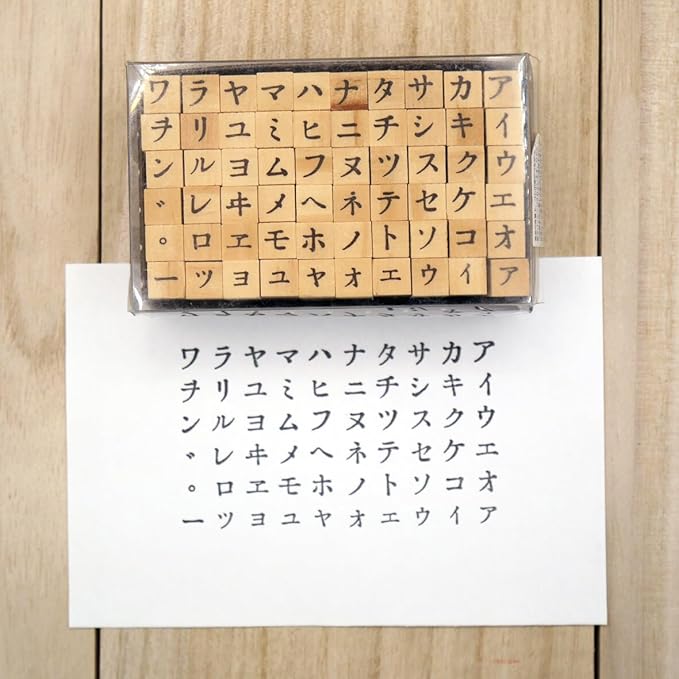 ワラヤマハナタサカア
ヲリユミヒニチシキイ
ンルヨムフヌツスクウ
゛レヰメヘネテセケエ
゜ロヱモホノトソコオ
ーッョュャォェゥィァ
ワラヤマハナタサカア
ヲリユミヒニチシキイ
ンルヨムフヌツスクウ
゛レヰメヘネテセケエ
゜ロヱモホノトソコオ
ーッョュャォェゥィァ